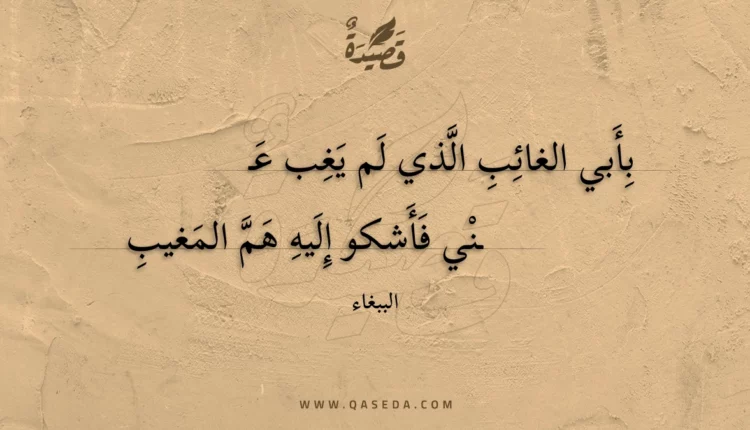 قَصِيدَةٌ
بِأَبي الغائِبِ الَّذي لَم يَغِب عَـ
ـنْي فَأَشكو إِلَيهِ هَمَّ المَغيبِ
الببغاء
WWW.QASEDA.COM